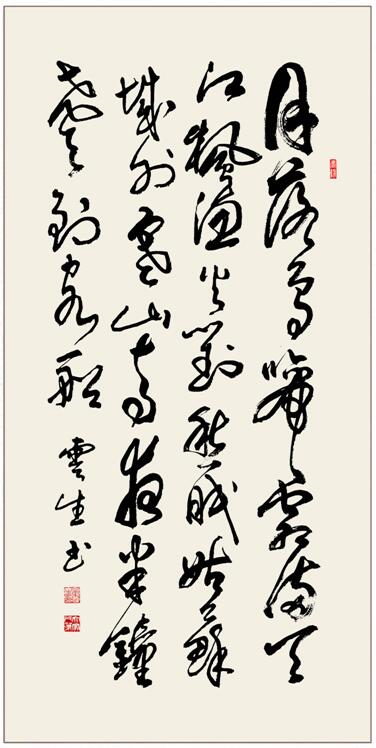 月落烏啼霜滿天
江楓漁火對愁眠姑蘇
城外寒山寺夜半鐘
聲到客船
雲生书